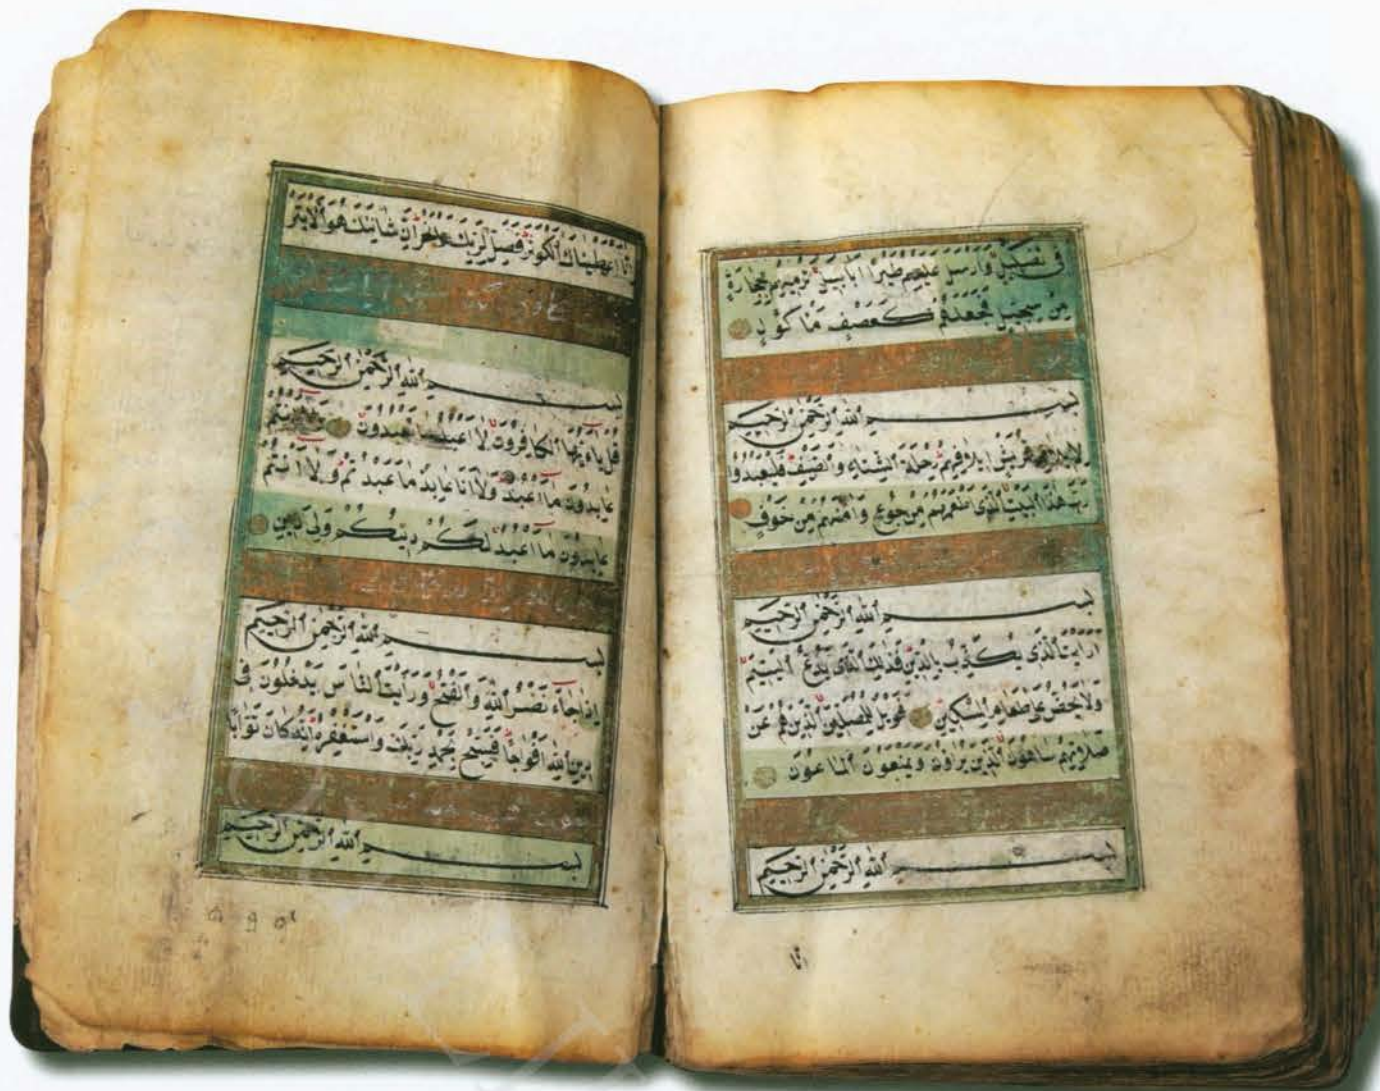 فِى تَضْلِيلٍ وَاَرْسَلَ عَلَيْهِمْ طَيْرًا اَبَابِيلَ تَرْمِيهِمْ بِحِجَارَةٍ
مِنْ سِجِّيلٍ فَجَعَلَهُمْ كَعَصْفٍ مَاْكُولٍ
بِسْمِ اللّٰهِ الرَّحْمٰنِ الرَّحِيمِ
لِاِيلَافِ قُرَيْشٍ اِيلَافِهِمْ رِحْلَةَ الشِّتَاءِ وَالصَّيْفِ فَلْيَعْبُدُوا
رَبَّ هٰذَا الْبَيْتِ الَّذِى اَطْعَمَهُمْ مِنْ جُوعٍ وَاٰمَنَهُمْ مِنْ خَوْفٍ
بِسْمِ اللّٰهِ الرَّحْمٰنِ الرَّحِيمِ
اَرَاَيْتَ الَّذِى يُكَذِّبُ بِالدِّينِ فَذٰلِكَ الَّذِى يَدُعُّ الْيَتِيمَ
وَلَا يَحُضُّ عَلٰى طَعَامِ الْمِسْكِينِ فَوَيْلٌ لِلْمُصَلِّينَ الَّذِينَ هُمْ عَنْ
صَلَاتِهِمْ سَاهُونَ الَّذِينَ يُرَاؤُنَ وَيَمْنَعُونَ الْمَاعُونَ
بِسْمِ اللّٰهِ الرَّحْمٰنِ الرَّحِيمِ
اِنَّا
اِنَّا اَعْطَيْنَاكَ الْكَوْثَرَ فَصَلِّ لِرَبِّكَ وَانْحَرْ اِنَّ شَانِئَكَ هُوَ الْاَبْتَرُ
بِسْمِ اللّٰهِ الرَّحْمٰنِ الرَّحِيمِ
قُلْ يَا اَيُّهَا الْكَافِرُونَ لَا اَعْبُدُ مَا تَعْبُدُونَ وَلَا اَنْتُمْ
عَابِدُونَ مَا اَعْبُدُ وَلَا اَنَا عَابِدٌ مَا عَبَدْتُمْ وَلَا اَنْتُمْ
عَابِدُونَ مَا اَعْبُدُ لَكُمْ دِينُكُمْ وَلِىَ دِينِ
بِسْمِ اللّٰهِ الرَّحْمٰنِ الرَّحِيمِ
اِذَا جَاءَ نَصْرُ اللّٰهِ وَالْفَتْحُ وَرَاَيْتَ النَّاسَ يَدْخُلُونَ فِى
دِينِ اللّٰهِ اَفْوَاجًا فَسَبِّحْ بِحَمْدِ رَبِّكَ وَاسْتَغْفِرْهُ اِنَّهُ كَانَ تَوَّابًا
بِسْمِ اللّٰهِ الرَّحْمٰنِ الرَّحِيمِ